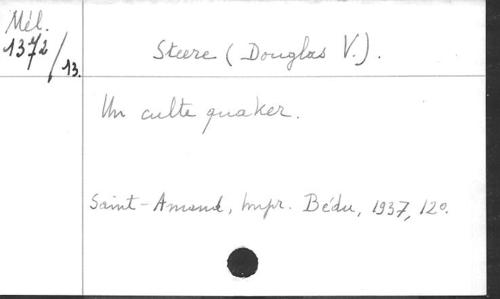 Mél.
1372/13.
Steere (Douglas V.).
Un culte quaker.
Saint-Amand, Impr. Bédu, 1937, 12º.